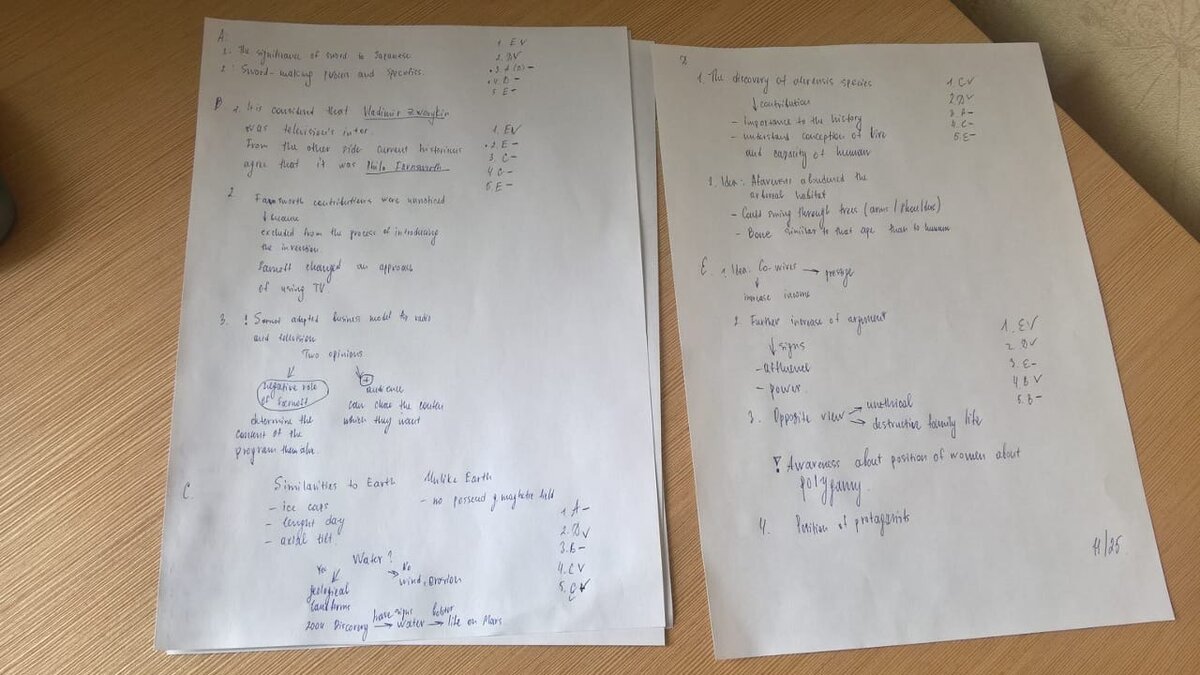 A.
1. The significance of sword to Japanese
2. Sword-making process and specifics.
1. E V
2. D V
. 3. A (D) -
. 4. D -
5. E -
B 1. It is considered that Vladimir Zworykin
was television's
From the other side current historians
agree that it was Philo Farnsworth
1. E V
. 2. E -
3. C -
4 C -
5. E -
2 Farnsworth contributions were unnoticed
↓ because
excluded from the process of introducing
the invention
Sarnoff changed an approach
of using TV.
3. ! Sarnof adapted business model for radio
and television
Two opinions
negative role
of Sarnoff
determine the
content of the
program
+
audience
can chose the
which they want
C.
Similarities to Earth
- ice caps
- lenght day
- axial tilt.
Unlike Earth
- no possered magnetic field
1. A -
2. D V
3. B -
4. C V
5. C V
Water?
Yes
geological
landforms
No
wind, erosion
2004 Discovery → have signs water → life on Mars
1. The discovery of species
↓ contribution
- Importance to the history
- understand conception of
and capacity of human
1. C V
2. D V
3. A -
4. C -
5. E -
Idea: Afarensis abandoned the
arboreal habitat
- Could swing through trees (arm / shoulder)
- Bone similar to that ape than to human
E. 1. Idea: Co-wives → prestige
↓
increase income
2. Further increase of argument
↓ signs
- affluence
- power.
1. E V
2. D V
3. E -
4. B V
5. B -
3. Opposite view → unethical
→ destructive family life
! Awareness about position of women about
polygamy.
4. Position of protagonists
11/25